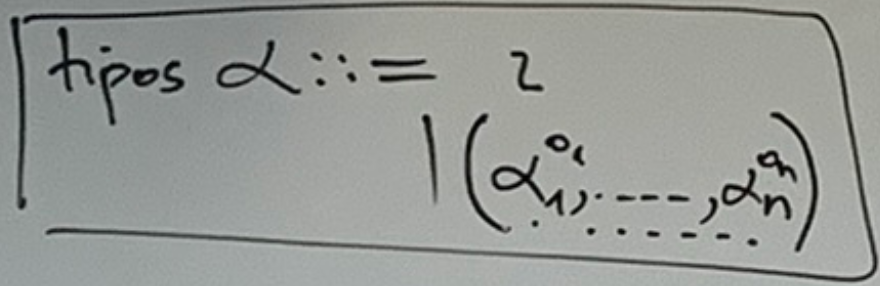 tipos α ::= ι
| (α₁^{a₁}, ----, αₙ^{aₙ})